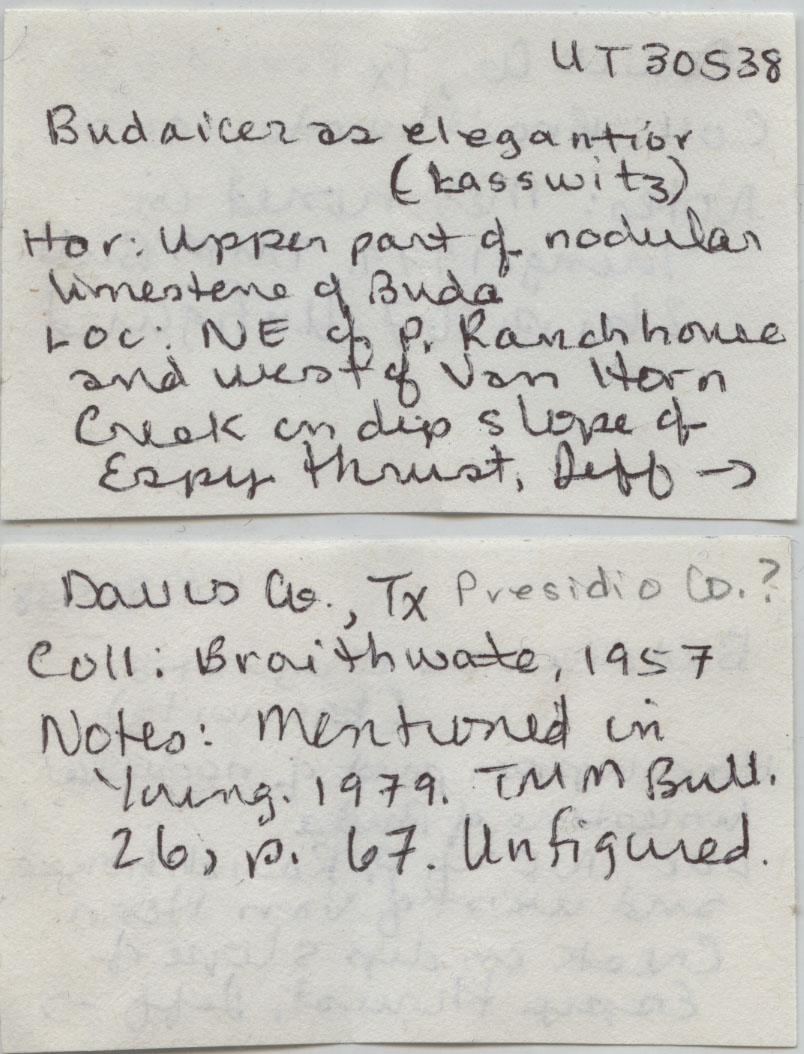 UT30538
Budaiceras elegantior
(Lasswitz)
Hor: Upper part of nodular
limestone of Buda
Loc: NE of P. Ranchhouse
and west of Van Horn
Creek on dip slope of
Espy thrust, Jeff →
Davis Co., Tx Presidio Co.?
Coll: Braithwate, 1957
Notes: Mentioned in
Young. 1979. TMM Bull.
26, p. 67. Unfigured.